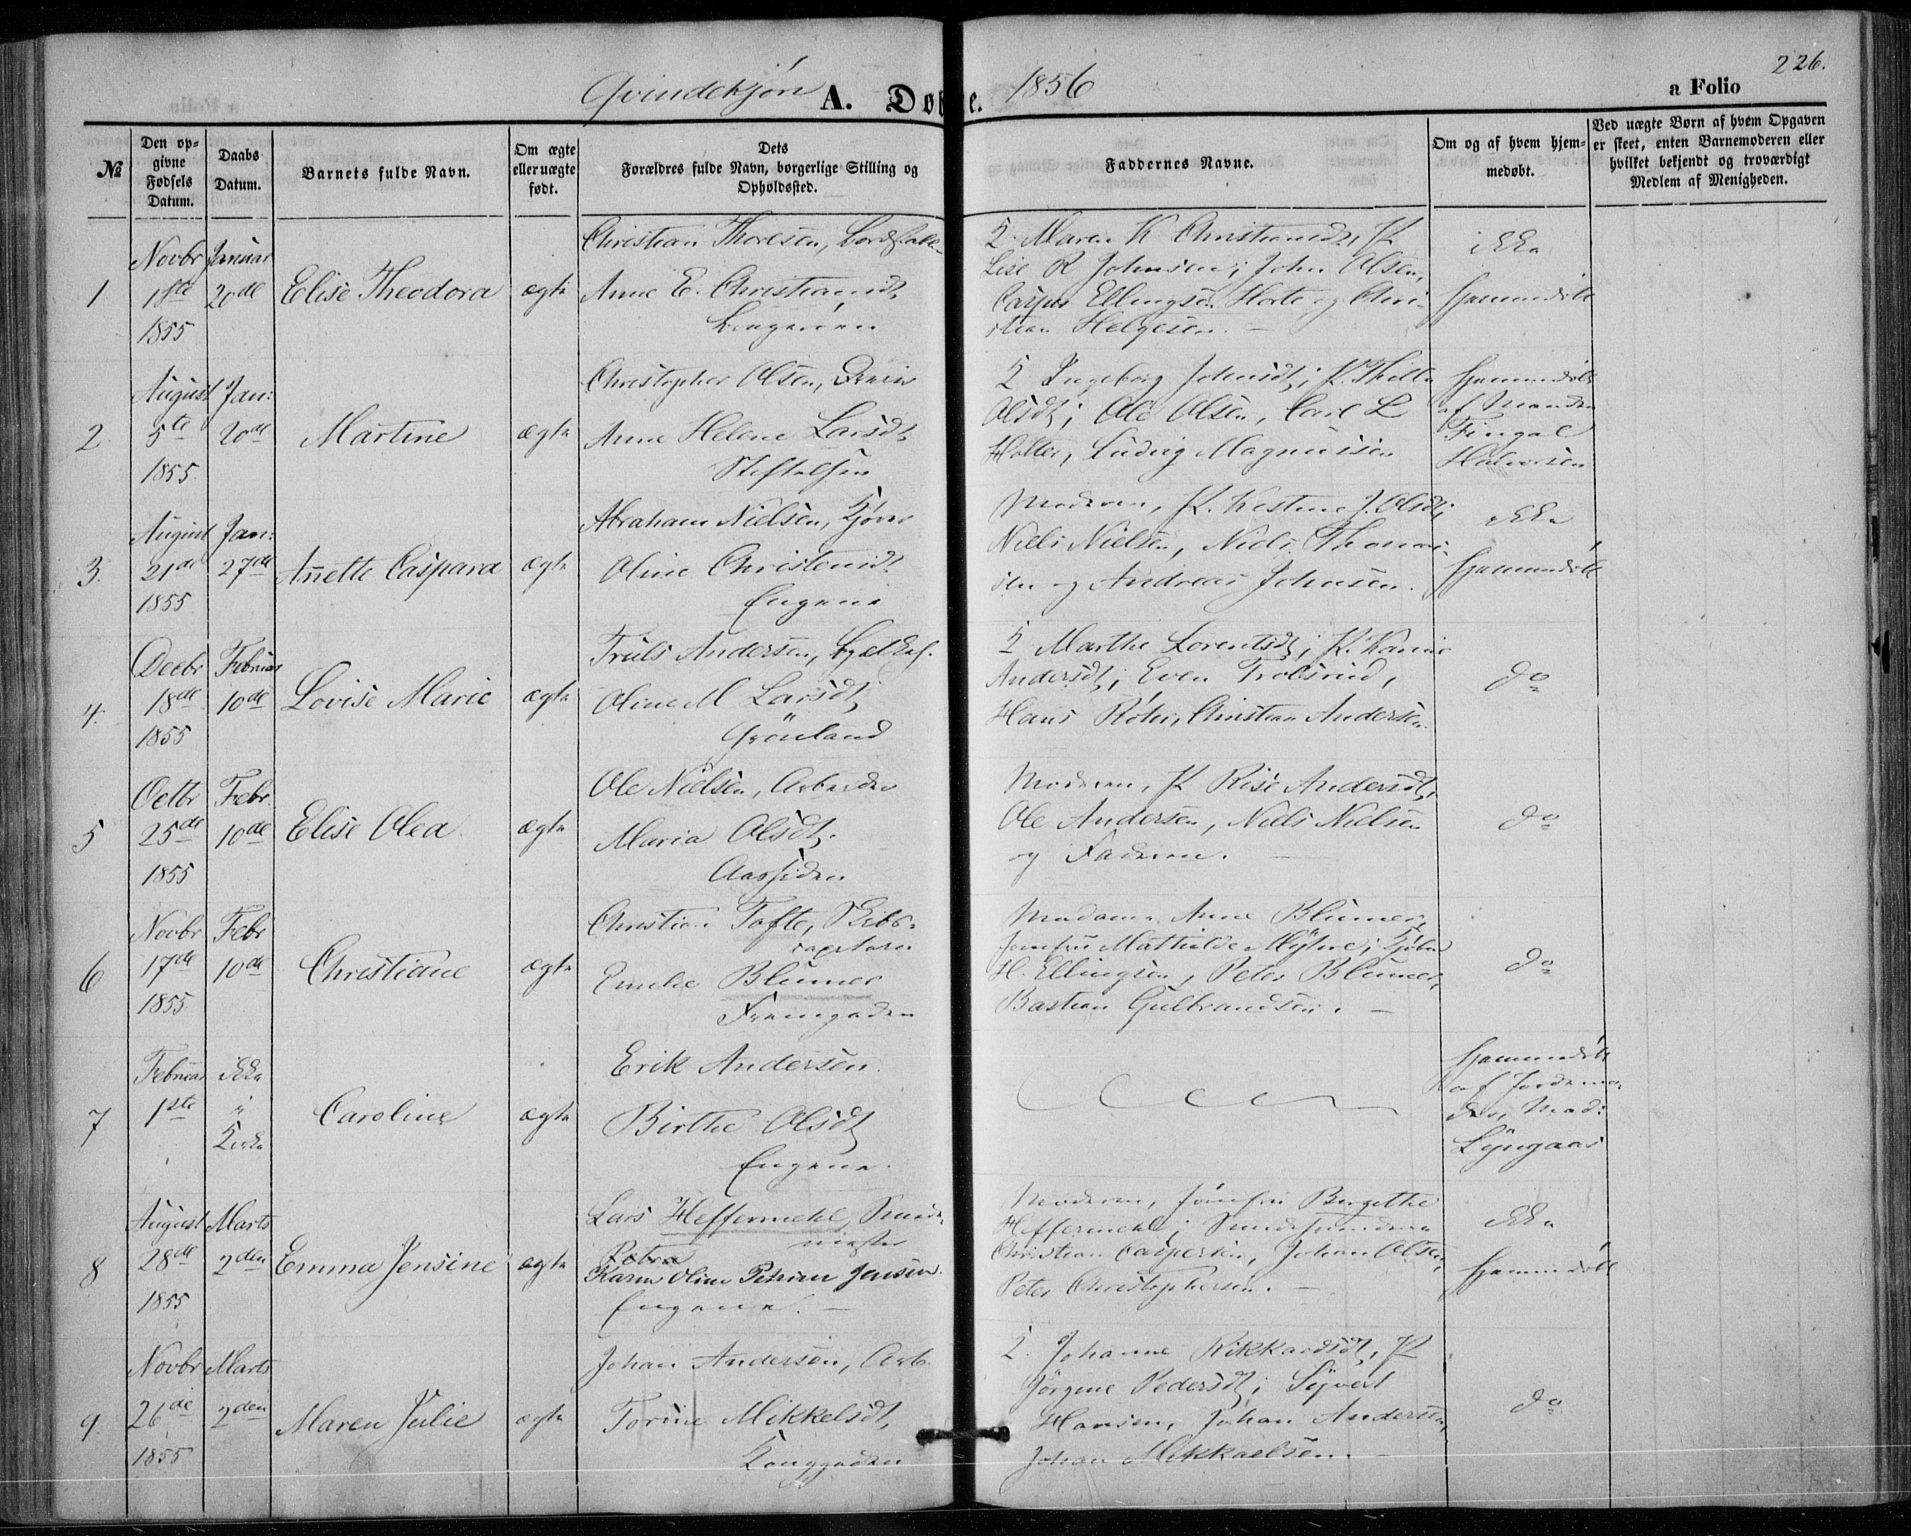 Qvindekjøn A. Døbte. 1856
226.
a Folio
№
Den op-
givne
Fødsels
Datum.
Daabs
Datum.
Barnets fulde Navn.
Om ægte
eller uægte
født.
Dets
Forældres fulde Navn, borgerlige Stilling og
Opholdssted.
Faddernes Navne.
Om og af hvem hjem-
medøbt.
Ved uægte Børn af hvem Opgaven
er skeet, enten Barnemoderen eller
hvilket bekjendt og troværdigt
Medlem af Menigheden.
1
Novbr
18de
1855
Januar
20de
Elise Theodora
ægte
Christian Thoresen,
Anne E. Christiansdt,
K. Maren K. Christiansdt, P.
Lise K Johnsen; John Olsen,
Casper Ellingsen Horte og Chri-
stian Helgesen.
ikke
hjemmedøbt
2
August
5te
1855.
Jan:
20de
Martine
ægte
Christopher Olsen,
Anne Helene Larsdt,
K Ingeborg Johnsdt; P. Thilla
Olsdt; Ole Olsen, Carl L
Holter, Ludvig Magnussen
hjemmedøbt
af Manden
Fingal
Halvorsen
3.
August
21de
1855
Jan:
27de
Anette Caspara
ægte
Abraham Nielsen,
Oline Christensdt
Engene
Moderen, P. Kestine J. Olsdt;
Niels Nielsen, Niels Thomas-
sen og Andreas Johnsen.
ikke
hjemmedøbt
4.
Decbr
18de
1855
Februar
10de
Lovise Marie
ægte
Truls Andersen,
Oline M Larsdt,
Grönland
K Marthe Lorentsdt; P. Karine
Andersdt; Even Trolsrud,
Hans Röhr, Christian Andersen
do
5
Octbr
25de
1855
Febr.
10de
Elise Olea.
ægte
Ole Nielsen, Arbeider
Maria Olsdt,
Aassiden
Moderen, P. Kise Andersdt,
Ole Andersen, Niels Nielsen
og Faderen.
do
6
Novbr
17de
1855
Febr
10de
Christiane
ægte
Christian Tofte, Skibs-
captain
Emilie Blumer
Tramgaden
Madame Anne Blumer,
Jomfru Mathilde Myhre; Kjøbm
H. Ellingsen, Peter Blumer,
Bastian Gulbrandsen.
do
7
Februar
1ste
ikke
i
Kirke
Caroline
ægte
Erik Andersen.
Birthe Olsdt,
Engene.
hjemmedøbt
af Jordemo-
der, Mad:
Lyngaas
8
August
28de
1855
Marts
2den
Emma Jensine
ægte
Lars Heffermehl, Smede-
mester
Petra
Karen Oline Petrine Jensen.
Engene.
Moderen, Jomfru Bergethe
Heffermehl; Smedesvendene
Christian Caspersen, Johan Olsen,
Peter Christophersen.
ikke
hjemmedøbt
9.
Novbr
26de
1855
Marts
2den
Maren Julie
ægte
Johan Andersen, Arb.
Torine Mikkelsdt,
Konggaden
K. Johanne Rikkardsdt, P
Jörgine Pedersdt; Syvert
Hansen, Johan Andersen,
Johan Mikkaelsen.
do